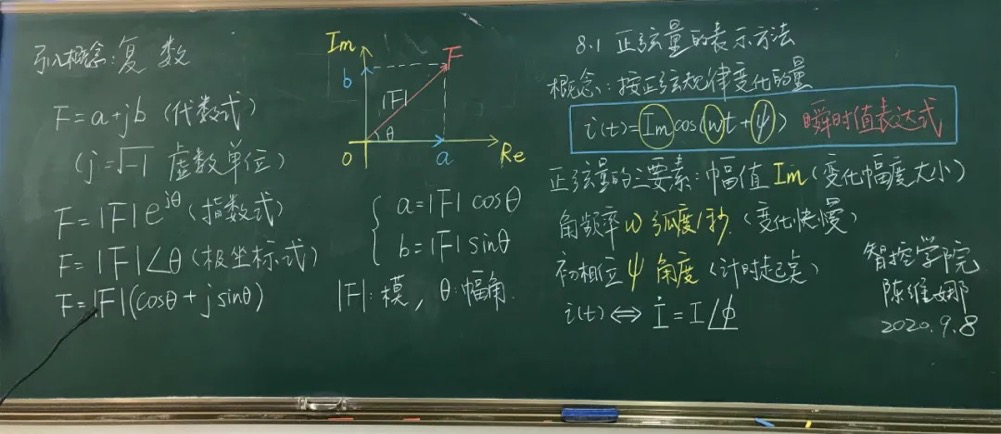 引入概念:复数
F=a+jb (代数式)
(j=√-1 虚数单位)
F=|F|e^jθ (指数式)
F=|F|∠θ (极坐标式)
F=|F|(cosθ+jsinθ)
Im
b
F
|F|
θ
0
a
Re
a=|F|cosθ
b=|F|sinθ
|F|:模, θ:幅角
8.1 正弦量的表示方法
概念:按正弦规律变化的量
i(t)=Im cos(ωt+ψ) 瞬时值表达式
正弦量的三要素:幅值 Im (变化幅度大小)
角频率 ω 弧度/秒.(变化快慢)
初相位 ψ 角度 (计时起点)
i(t)⇔İ=I∠ϕ
智控学院
陈维娜
2020.9.8